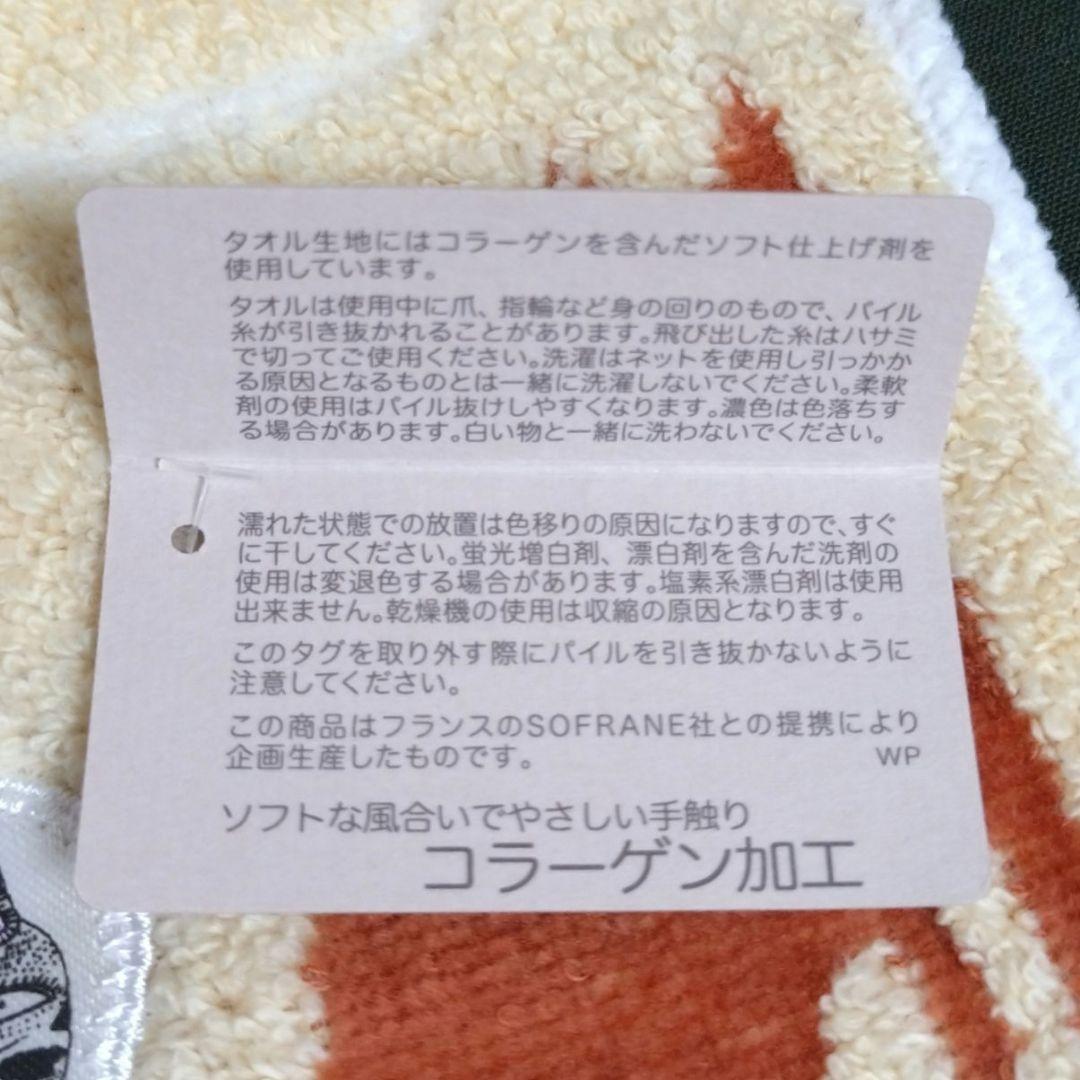 タオル生地にはコラーゲンを含んだソフト仕上げ剤を
使用しています。
タオルは使用中に爪、指輪など身の回りのもので、パイル
糸が引き抜かれることがあります。飛び出した糸はハサミ
で切ってご使用ください。洗濯はネットを使用し引っかか
る原因となるものとは一緒に洗濯しないでください。柔軟
剤の使用はパイル抜けしやすくなります。濃色は色落ちす
る場合があります。白い物と一緒に洗わないでください。
濡れた状態での放置は色移りの原因になりますので、すぐ
に干してください。蛍光増白剤、漂白剤を含んだ洗剤の
使用は変退色する場合があります。塩素系漂白剤は使用
出来ません。乾燥機の使用は収縮の原因となります。
このタグを取り外す際にパイルを引き抜かないように
注意してください。
この商品はフランスのSOFRANE社との提携により
企画生産したものです。 WP
ソフトな風合いでやさしい手触り
コラーゲン加工